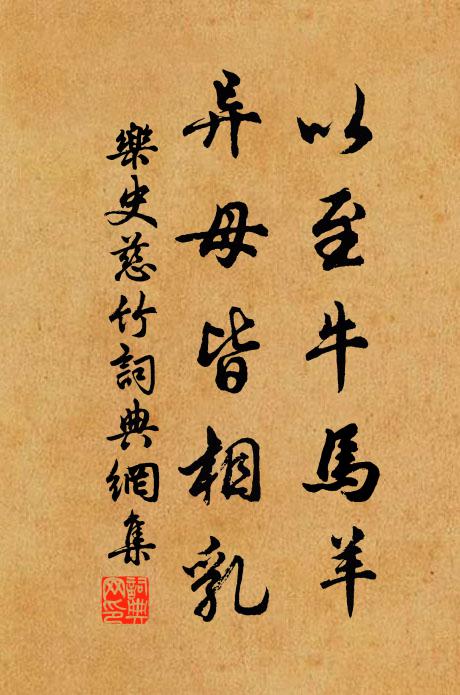 以至牛馬羊
异母皆相乳
樂史慈竹詞典網集
詞典网印